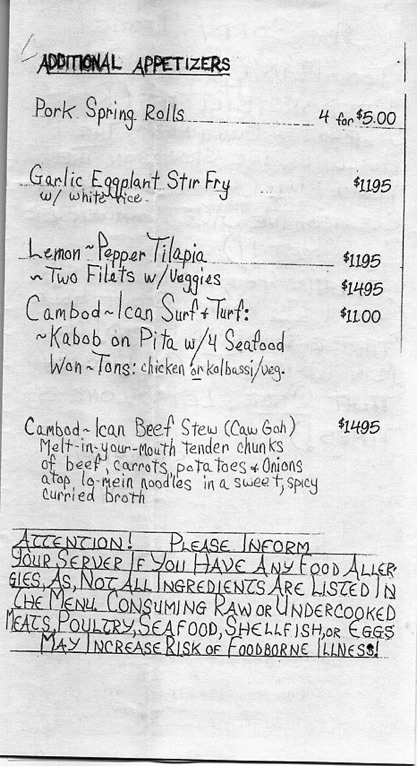 ADDITIONAL APPETIZERS
Pork Spring Rolls 4 for $5.00
Garlic Eggplant Stir Fry $1195
w/ white rice.
Lemon~Pepper Tilapia $1195
~ Two Filets w/Veggies $1495
Cambod~Ican Surf + Turf: $11.00
~Kabob on Pita w/4 Seafood
Won~Tons: chicken or kolbassi/veg.
Cambod~Ican Beef Stew (Caw Goh) $1495
Melt-in-your-Mouth tender chunks
of beef, carrots, potatoes + Onions
atop lo-mein noodles in a sweet, spicy
curried broth
ATTENTION! PLEASE INFORM
YOUR SERVER IF YOU HAVE ANY FOOD ALLER-
GIES, AS, NOT ALL INGREDIENTS ARE LISTED IN
THE MENU. CONSUMING RAW OR UNDERCOOKED
MEATS, POULTRY, SEAFOOD, SHELLFISH, OR EGGS
MAY INCREASE RISK OF FOODBORNE ILLNESS!